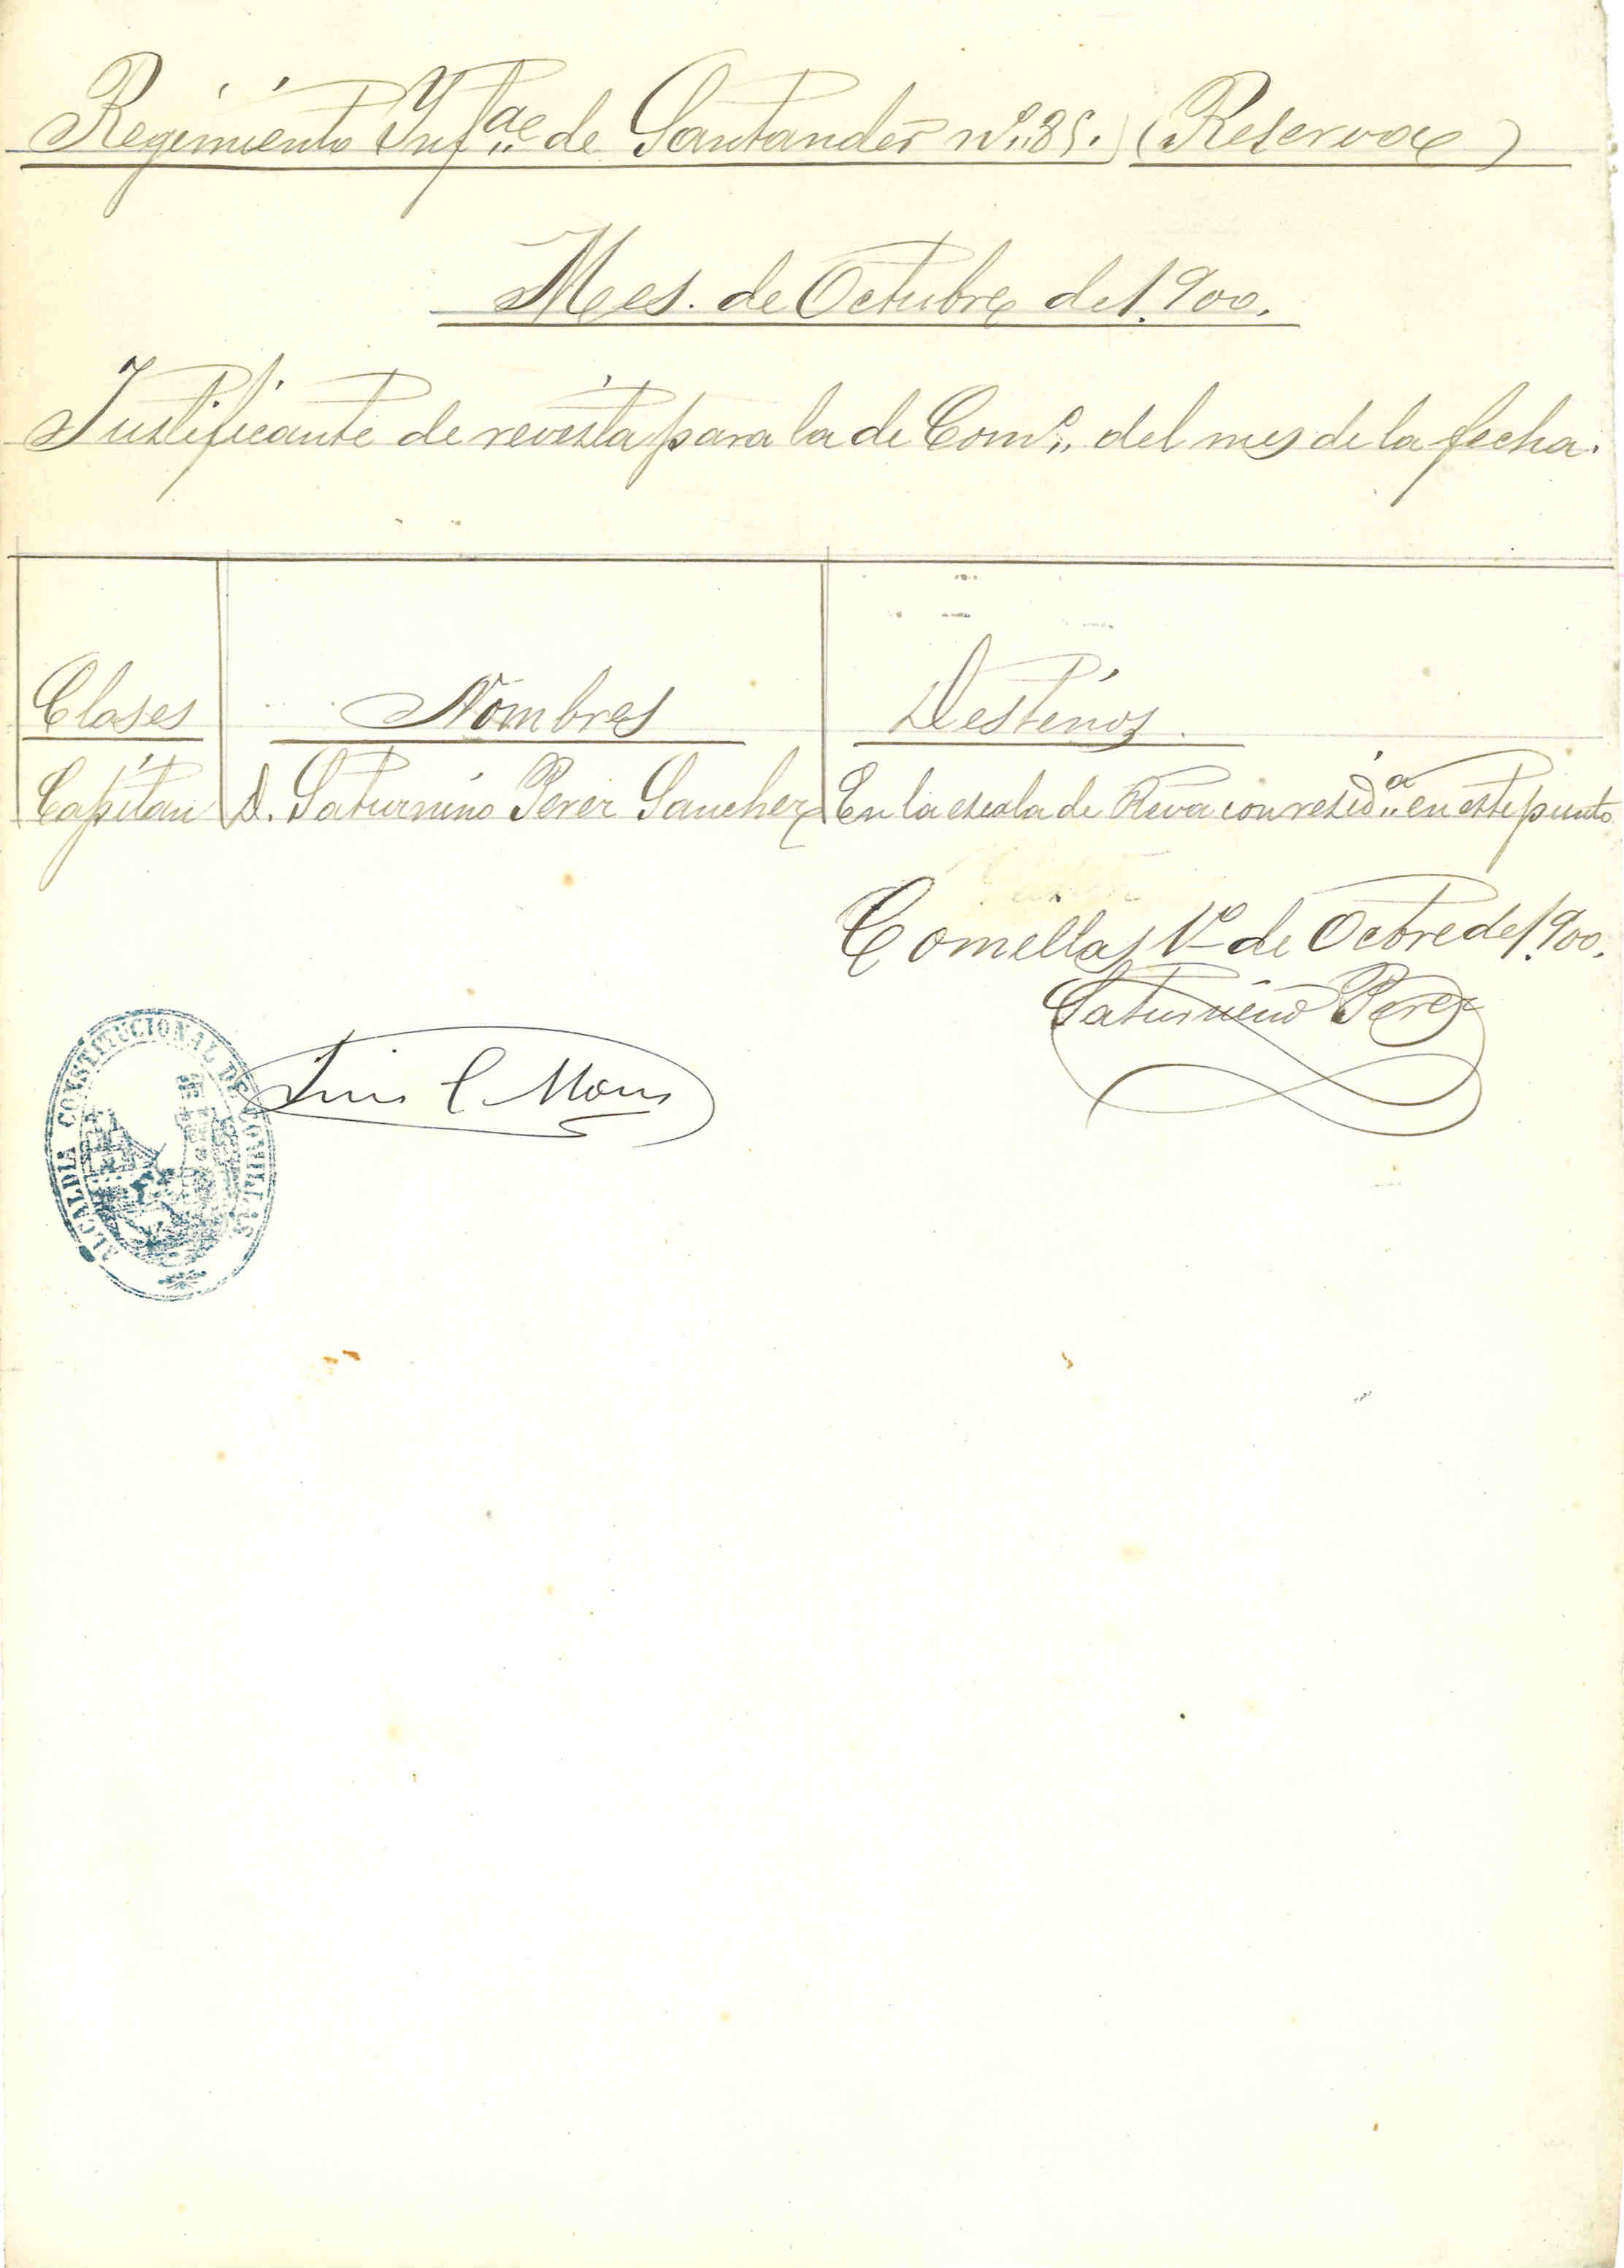 Regimiento Ynf.ª de Santander nº 85. (Reserva)
Mes. de Octubre de 1.900.
Justificante de revista para la de Com.º del mes de la fecha.
Clases Nombres Destinos
Capitan D. Saturnino Perez Sanchez En la escala de Rva con resid.ª en este punto
Comillas 1º de Octbre de 1.900.
Saturnino Perez
ALCALDIA CONSTITUCIONAL DE COMILLAS
Luis C